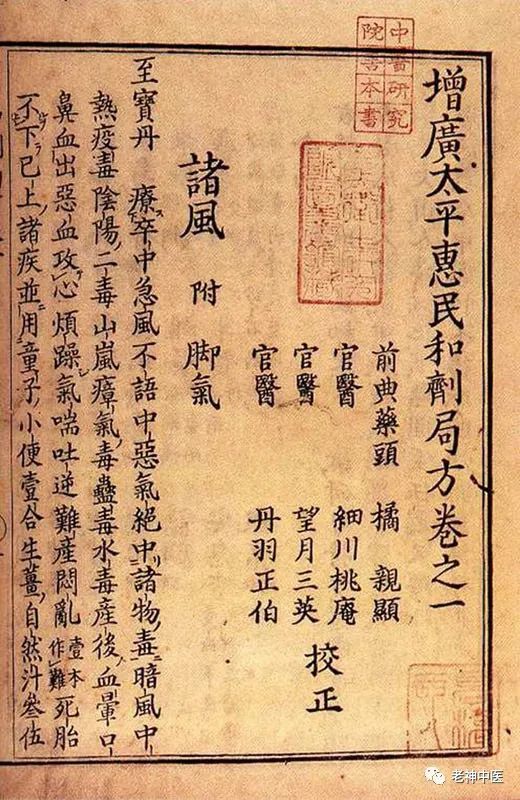 增廣太平惠民和劑局方卷之一
前典藥頭 橘 親顯
官醫 細川桃庵
官醫 望月三英
官醫 丹羽正伯
校正
諸風 附 脚氣
至寶丹 療卒中急風不語中惡氣絕中諸物毒暗風中
熱疫毒陰陽二毒山嵐瘴氣毒蠱毒水毒產後血暈口
鼻血出惡血攻心煩躁氣喘吐逆難產悶亂壹本作難死胎
不下已上諸疾並用童子小便壹合生薑自然汁叄伍
中醫研究
院善本書
老神中医